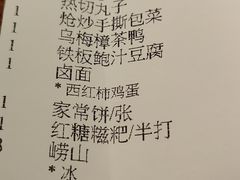 热切丸子
炝炒手撕包菜
1 乌梅樟茶鸭
1 铁板鲍汁豆腐
1 卤面
* 西红柿鸡蛋
家常饼/张
1 红糖糍粑/半打
崂山
* 冰